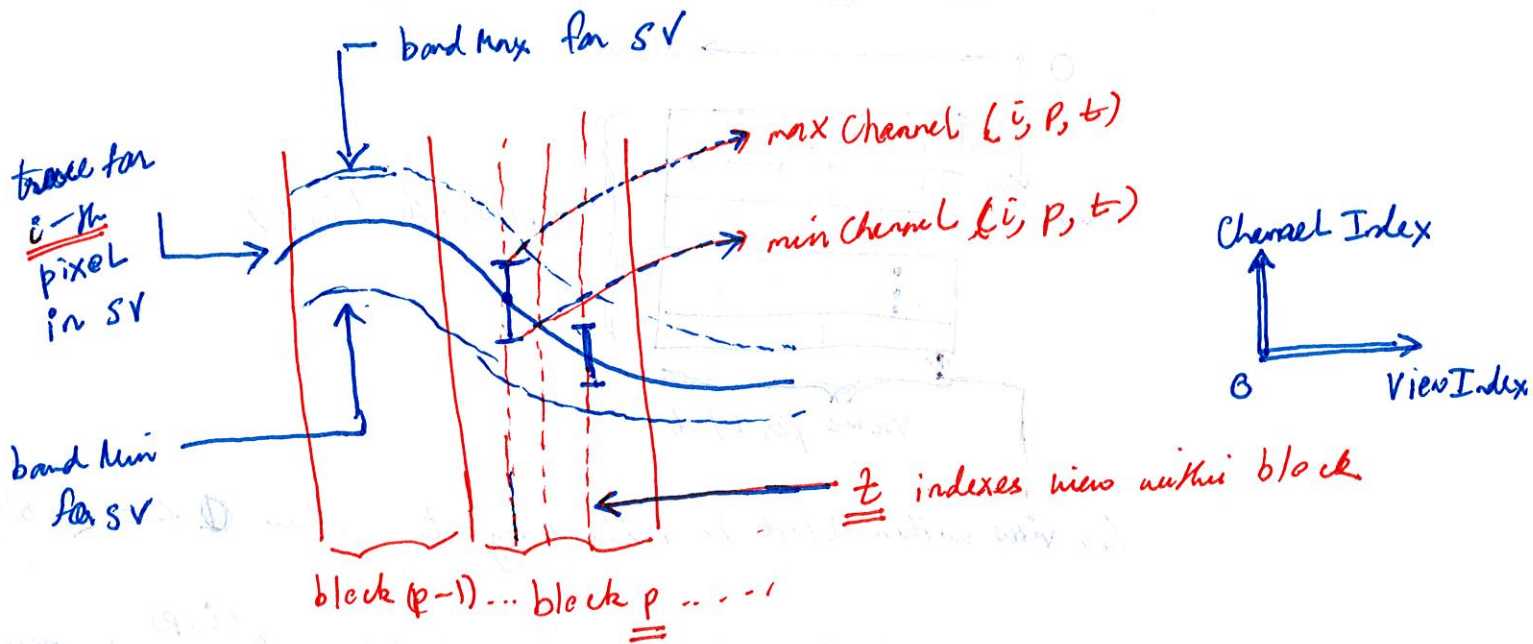 band Max for SV
trace for
i-th
pixel
in SV
max Channel (i, p, t)
min Channel (i, p, t)
Channel Index
0
View Index
band Min
for SV
t indexes view within block
block (p-1) ... block p .....